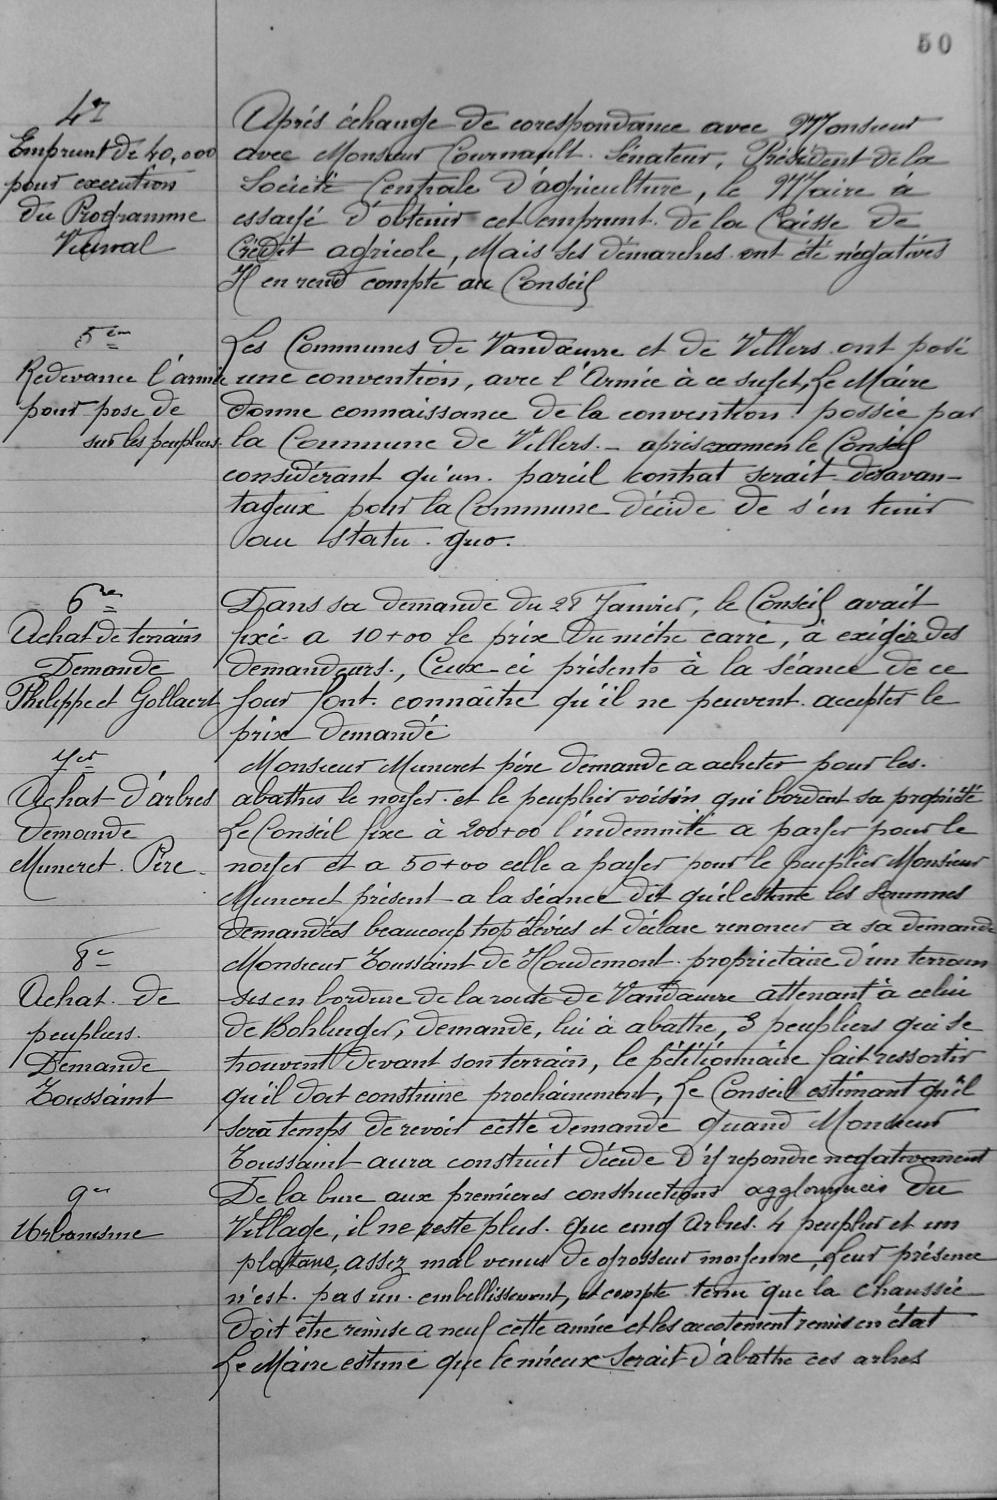 50
4e
Emprunt de 40,000
pour execution
du Programme
Vicinal
Aprés échange de corespondance avec Monsieur
avec Monsieur Cournault. Sénateur, Président de la
Société Centrale d'agriculture, le Maire à
essayé d'obtenir cet emprunt. de la Caisse de
Crédit agricole, Mais ses démarches ont été négatives
Il en rend compte au Conseil
5em
Redevance l'armée
pour pose de
sur les peupliers.
Les Communes de Vandœuvre et de Villers ont
une convention, avec l'Armée à ce sujet, Le Maire
donne connaissance de la convention par
la Commune de Villers. - apris examen le Conseil
considérant qu'un. pareil contrat serait desavan-
tageux pour la Commune décide de s'en tenir
au statu. quo.
6me
Achat de terrain
Demande
Philippe et Gollaert
Dans sa demande du 28 Janvier, le Conseil avait
fixé a 10+00 le prix du mètre carré, à exigér des
demandeurs., Ceux-ci présents à la séance de ce
jour font. connaître qu'il ne peuvent. accepter le
prix demandé
7er
Achat d'arbres
Demande
Muneret. Père.
Monsieur Muneret père demande a acheter pour les.
abattres le noyer. et le peuplier voisin qui bordent sa propriété
Le Conseil fixe à 200+00 l'indemnité a payer pour le
noyer et a 50+00 celle a payer pour le peuplier Monsieur
Muneret présent a la séance dit qu'il estime les sommes
demandées beaucoup trop élévées et déclare renoncer a sa demande
8e
Achat. de
peupliers.
Demande
Toussaint
Monsieur Toussaint de Houdemont. proprietaire d'un terrain
sis en bordure de la route de Vandœuvre attenant à celui
de Bohlinger, demande, lui à abattre, 3 peupliers qui se
trouvent devant son terrain, le pétitionnaire fait ressortir
qu'il doit construire prochainement, Le Conseil estimant qu'il
sera temps de revoir cette demande quand Monsieur
Toussaint aura construit décide d'y repondre negativement
9em
Urbanisme
De la bure aux premières constructions du
Village, il ne reste plus. que cinq arbres. 4 peuplier et un
platane, assez mal venus de grosseur moyenne, Leur présence
n'est. pas un. embellissement, et compte tenu que la chaussée
doit être remise a neuf cette année et les accotement remis en état
Le Maire estime que le mieux serait d'abattre ces arbres